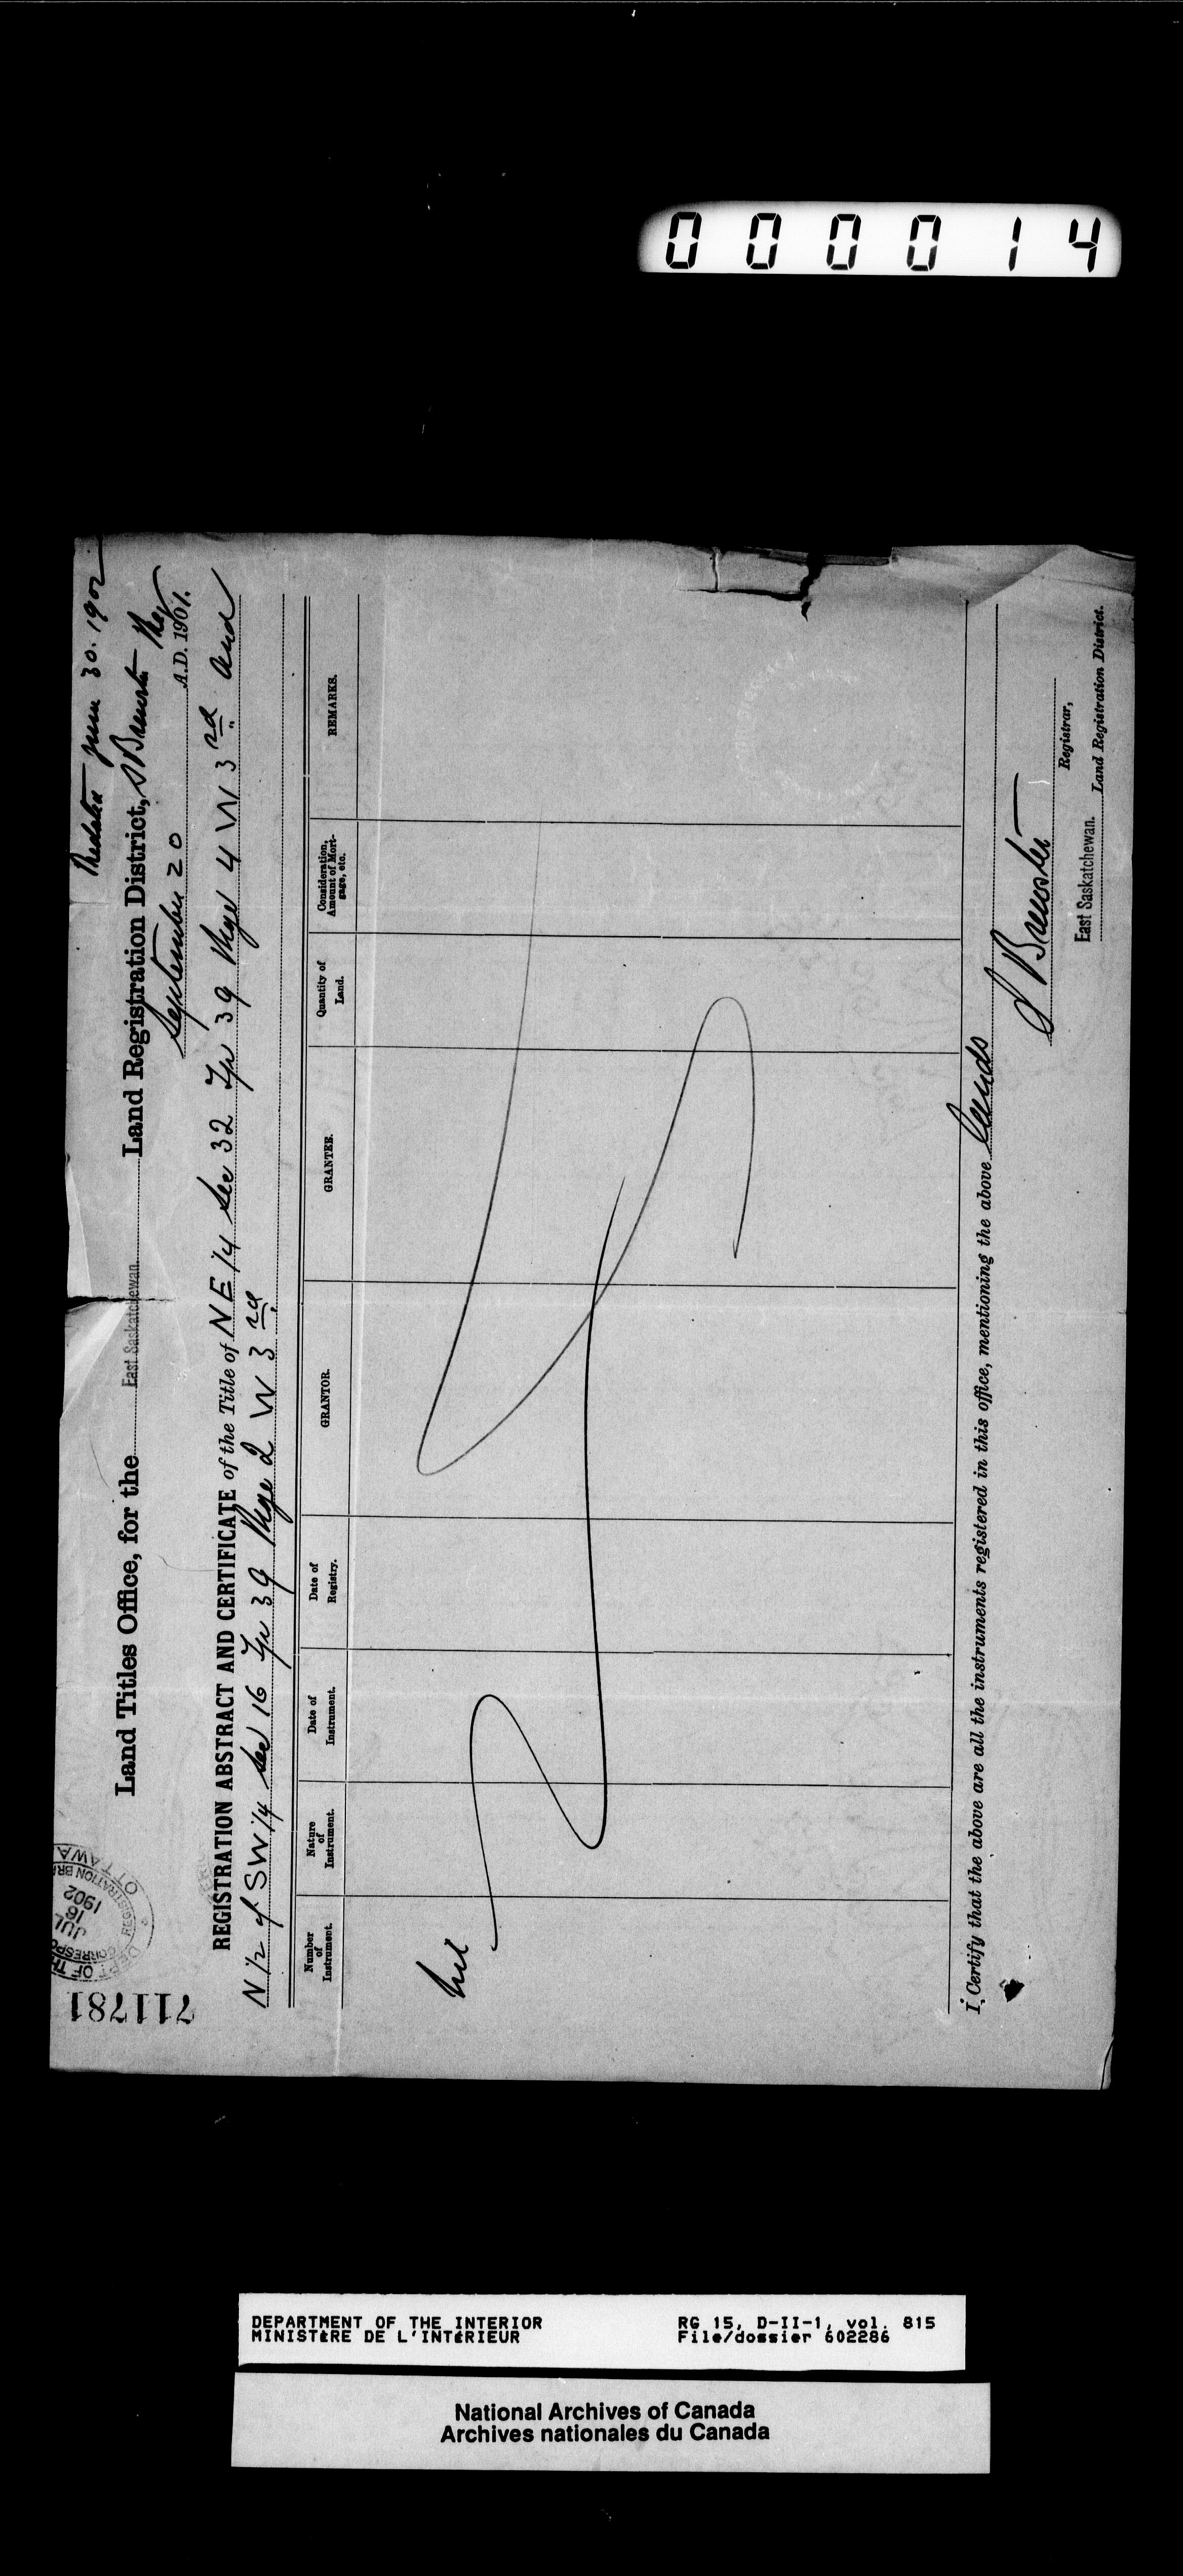 000014
711781
DEPT OF THE
CORRESPO
REGISTRATION BRA
JUL
16
1902
OTTAWA
Redated June 30. 1902
Land Titles Office, for the East Saskatchewan. Land Registration District, S Brewster Reg
September 20 A.D. 1901.
REGISTRATION ABSTRACT AND CERTIFICATE of the Title of NE 1/4 Sec 32 Tp 39 Rge 4 W 3rd and
N 1/2 of SW 1/4 Sec 16 Tp 39 Rge 2 W 3rd.
Number of Instrument.
Nature of Instrument.
Date of Instrument.
Date of Registry.
GRANTOR.
GRANTEE.
Quantity of Land.
Consideration, Amount of Mortgage, etc.
REMARKS.
Nil
I Certify that the above are all the instruments registered in this office, mentioning the above lands
S Brewster
Registrar,
East Saskatchewan. Land Registration District.
DEPARTMENT OF THE INTERIOR RG 15, D-II-1, vol. 815
MINISTÈRE DE L'INTÉRIEUR File/dossier 602286
National Archives of Canada
Archives nationales du Canada